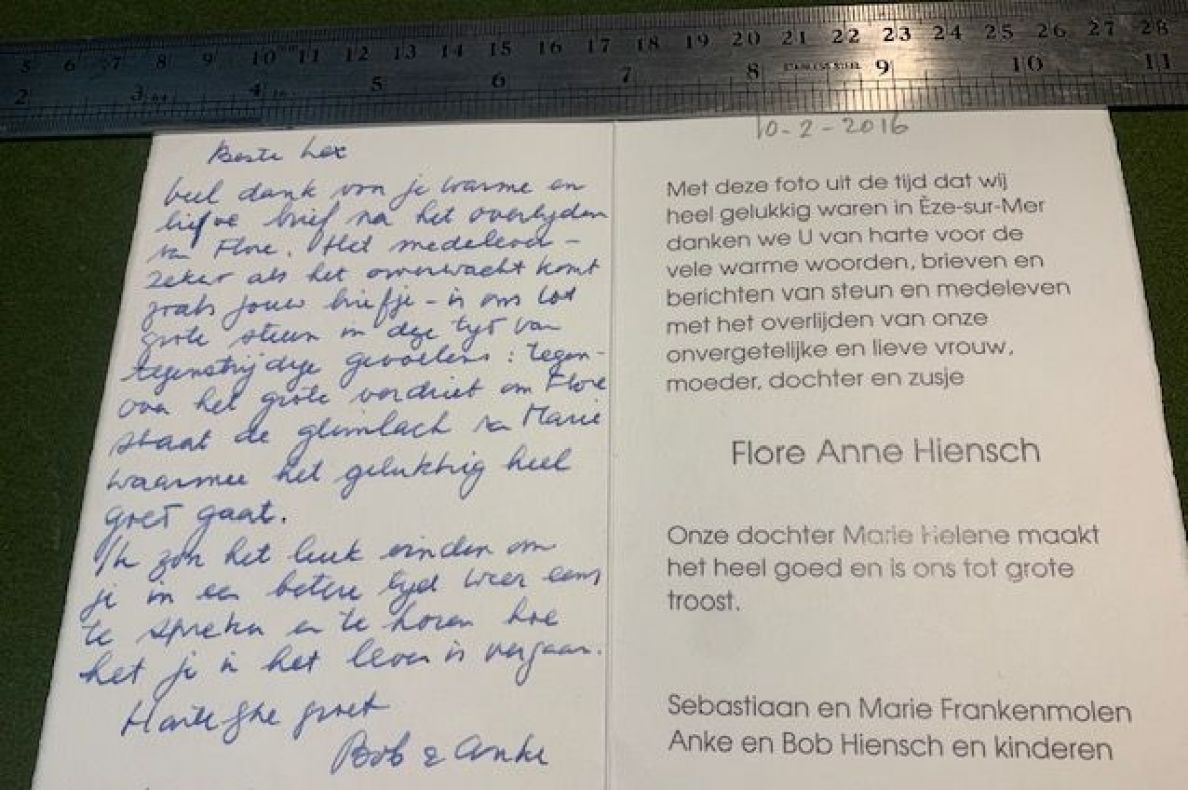 5 6 7 8 9 10 11 12 13 14 15 16 17 18 19 20 21 22 23 24 25 26 27 28
2 3 4 5 6 7 8 9 10 11
Beste Lex
veel dank voor je warme en
lieve brief na het overlijden
van Flore. Het medeleven -
zeker als het onverwacht komt
zoals jouw briefje - is ons tot
grote steun in deze tijd van
tegenstrijdige gevoelens: tegen-
over het grote verdriet om Flore
staat de glimlach van Marie
waarmee het gelukkig heel
goed gaat.
Ik zou het leuk vinden om
je in een betere tijd weer eens
te spreken en te horen hoe
het je in het leven is vergaan.
Hartelijke groet
Bob & Anke
10-2-2016
Met deze foto uit de tijd dat wij
heel gelukkig waren in Èze-sur-Mer
danken we U van harte voor de
vele warme woorden, brieven en
berichten van steun en medeleven
met het overlijden van onze
onvergetelijke en lieve vrouw,
moeder, dochter en zusje
Flore Anne Hiensch
Onze dochter Marie Helene maakt
het heel goed en is ons tot grote
troost.
Sebastiaan en Marie Frankenmolen
Anke en Bob Hiensch en kinderen